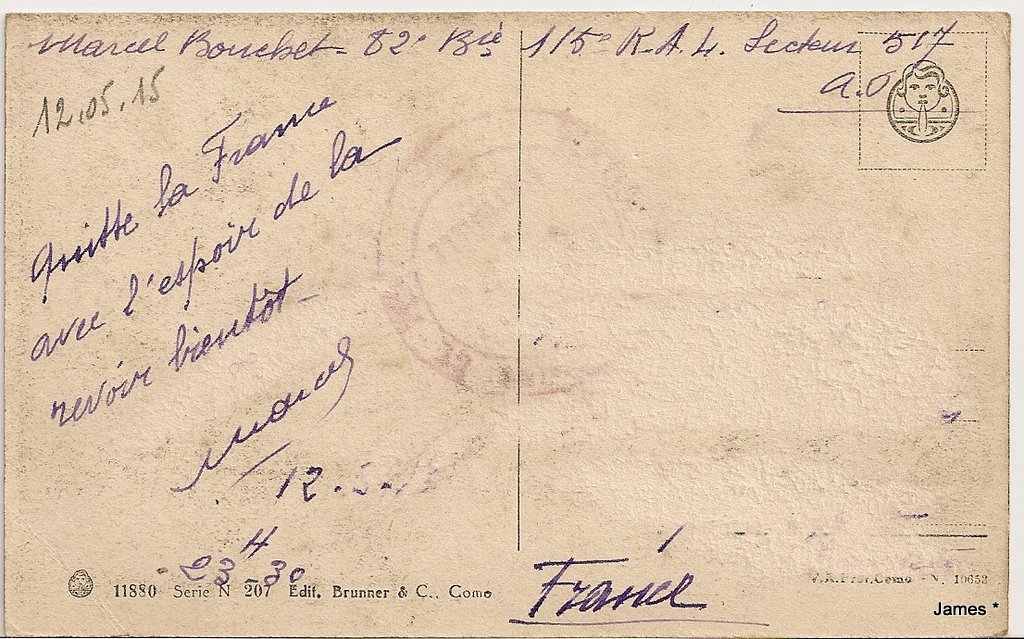 Marcel Bouchet - 82e Bie 115e R.A.L. Secteur 517
12.05.15
Quitte la France
avec l'espoir de la
revoir bientôt -
Marcel
12 - 5 -
4
- 23 - 30
France
11880 Serie N 207 Edit. Brunner & C., Como
N. 10652
James *